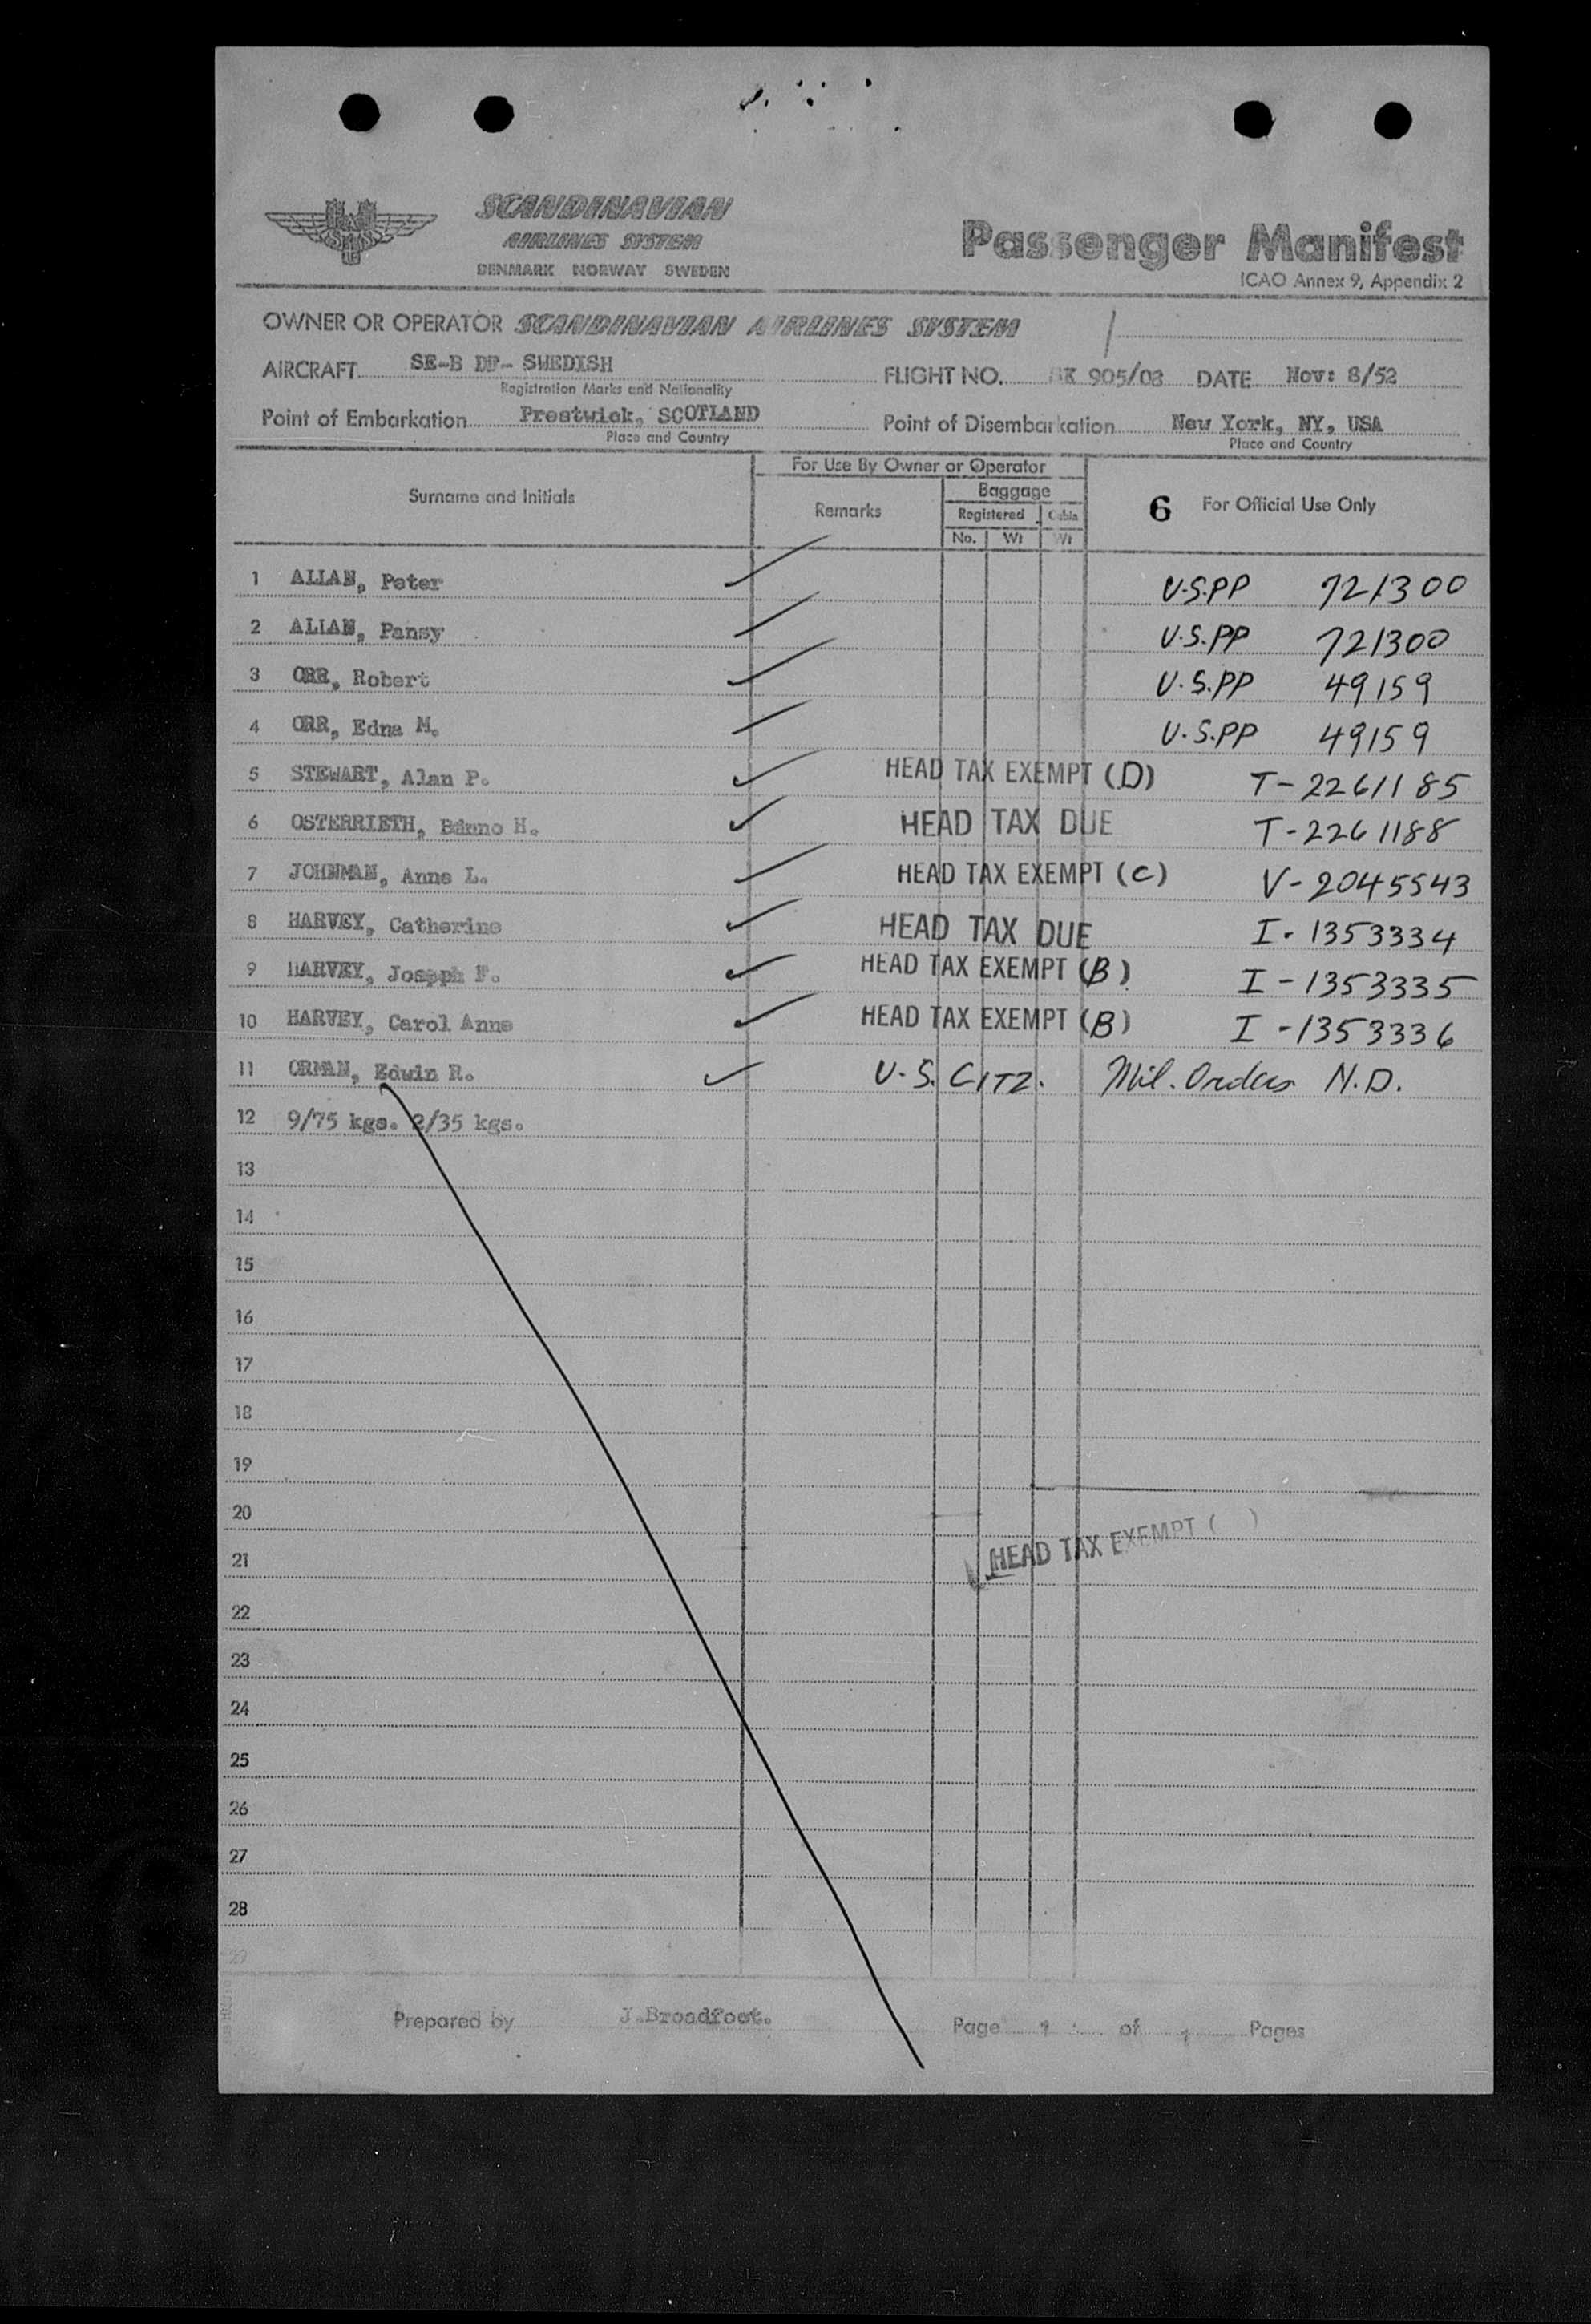 SCANDINAVIAN
AIRLINES SYSTEM
DENMARK NORWAY SWEDEN
Passenger Manifest
ICAO Annex 9, Appendix 2
OWNER OR OPERATOR SCANDINAVIAN AIRLINES SYSTEM
AIRCRAFT SE-B DP- SWEDISH FLIGHT NO. SK 905/08 DATE Nov: 8/52
Registration Marks and Nationality
Point of Embarkation Prestwick, SCOTLAND Point of Disembarkation New York, NY, USA
Place and Country Place and Country
For Use By Owner or Operator
Surname and Initials Remarks Baggage 6 For Official Use Only
Registered Cabin
No. Wt Wt
1 ALLAN, Peter U.S.PP 721300
2 ALLAN, Pansy U.S.PP 721300
3 ORR, Robert U.S.PP 49159
4 ORR, Edna M. U.S.PP 49159
5 STEWART, Alan P. HEAD TAX EXEMPT (D) T-2261185
6 OSTERRIETH, H. HEAD TAX DUE T-2261188
7 JOHNMAN, Anne L. HEAD TAX EXEMPT (C) V-2045543
8 HARVEY, Catherine HEAD TAX DUE I-1353334
9 HARVEY, Joseph F. HEAD TAX EXEMPT (B) I-1353335
10 HARVEY, Carol Anne HEAD TAX EXEMPT (B) I-1353336
11 ORMAN, Edwin R. U.S. CITZ. Mil. Orders N.D.
12 9/75 kgs. 2/35 kgs.
13
14
15
16
17
18
19
20
21 HEAD TAX EXEMPT ( )
22
23
24
25
26
27
28
29
Prepared by J.Broadfoot. Page 1 of 1 Pages